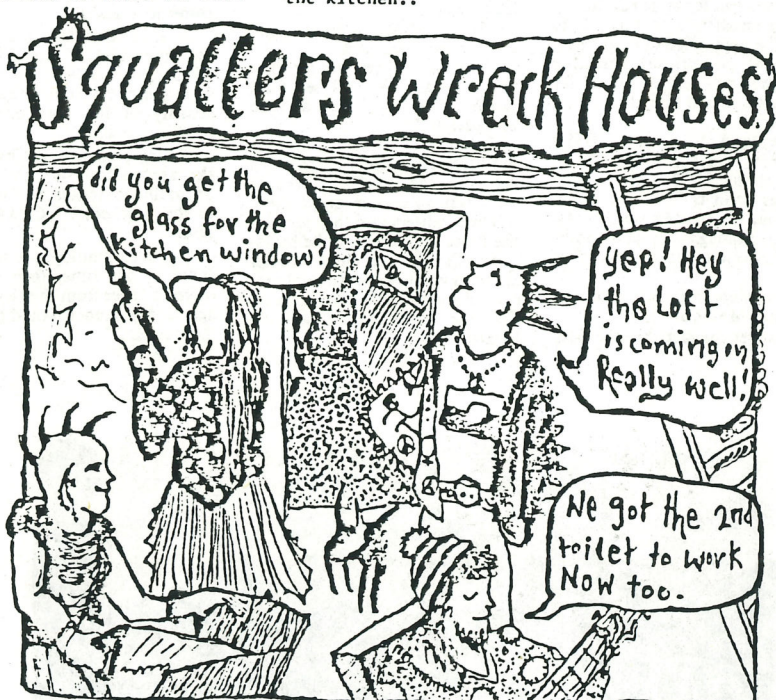 the kitchen..
Squatters Wreck Houses
did you get the
glass for the
kitchen window?
yep! Hey
the Loft
is coming on
Really well!
We got the 2nd
toilet to work
Now too.